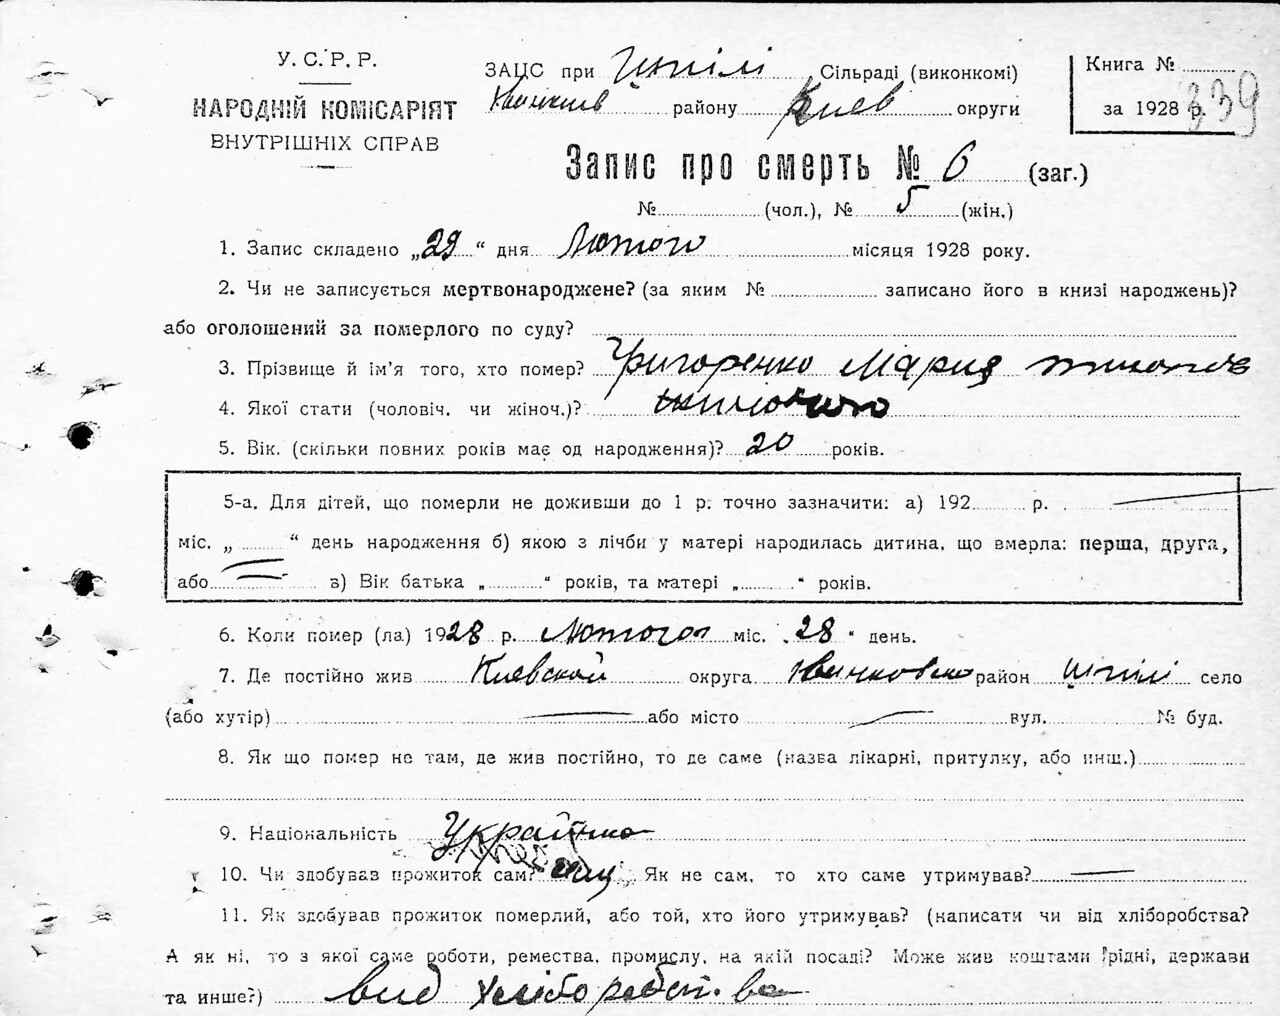 У. С. Р. Р.
НАРОДНІЙ КОМІСАРІЯТ
ВНУТРІШНІХ СПРАВ
ЗАЦС при Шпілі Сільраді (виконкомі)
району Киев округи
Книга №
за 1928 р. 339
Запис про смерть № 6 (заг.)
№ (чол.), № 5 (жін.)
1. Запис складено „29“ дня Лютого місяця 1928 року.
2. Чи не записується мертвонароджене? (за яким № записано його в книзі народжень)?
або оголошений за померлого по суду?
3. Прізвище й ім'я того, хто помер? Григоренко Мария
4. Якої стати (чоловіч. чи жіноч.)?
5. Вік. (скільки повних років має од народження)? 20 років.
5-а. Для дітей, що померли не доживши до 1 р. точно зазначити: а) 192 р.
міс. „ “ день народження б) якою з лічби у матері народилась дитина, що вмерла: перша, друга,
або в) Вік батька „ “ років, та матері „ “ років.
6. Коли помер (ла) 1928 р. Лютого міс. „28“ день.
7. Де постійно жив Киевской округа район Шпілі село
(або хутір) або місто вул. № буд.
8. Як що помер не там, де жив постійно, то де саме (назва лікарні, притулку, або инш.)
9. Національність Українка
10. Чи здобував прожиток сам? Як не сам, то хто саме утримував?
11. Як здобував прожиток померлий, або той, хто його утримував? (написати чи від хліборобства?
А як ні, то з якої саме роботи, ремества, промислу, на якій посаді? Може жив коштами рідні, держави
та инше?) вид хліборобства